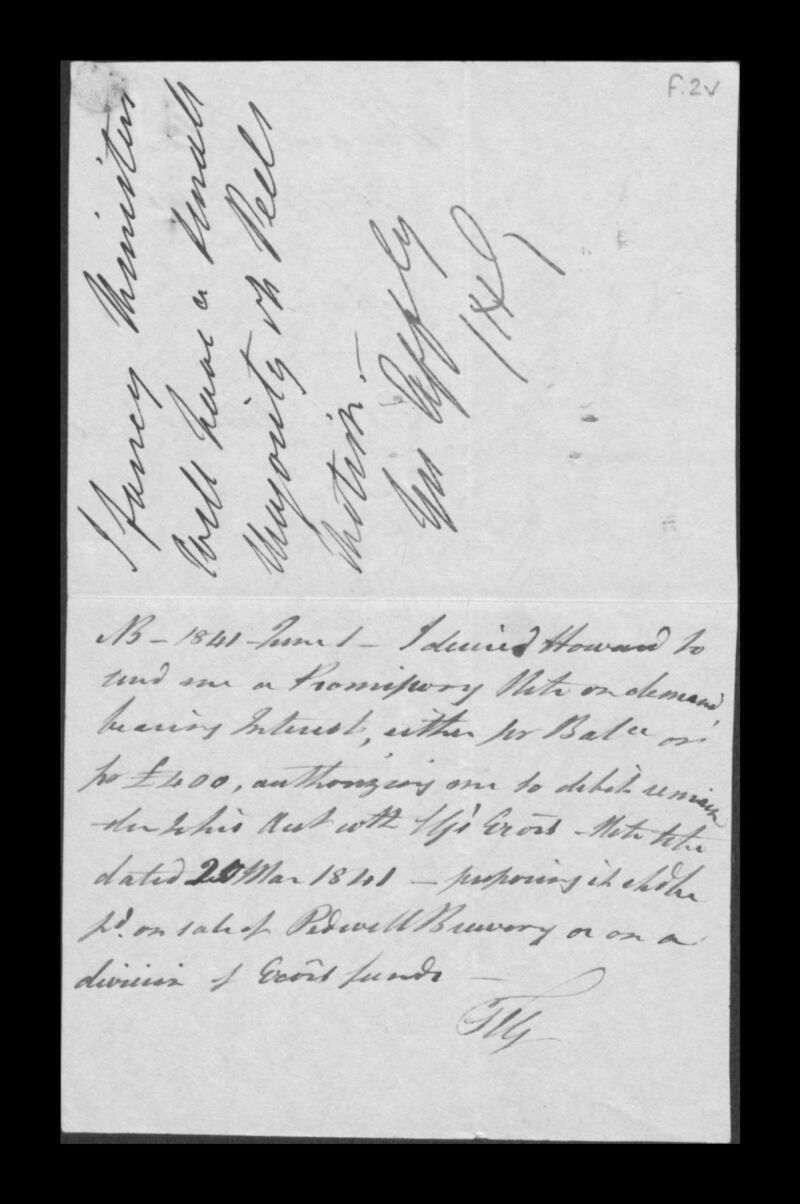 F.2v
I fancy Ministers
will have a small
Majority on Peels
motion. —
Yrs Affly
HG
NB – 1841 June 1 – I desired Howard to
send me a Promissory Note on demand,
bearing Interest, either for Balce or
for £400, authorizing me to debit remain
-der to his Acct with Exors – Note to be
dated 25 Mar 1841 – proposing it shd be
pd. on sale of Pidwell Brewery or on a
division of Exors funds —